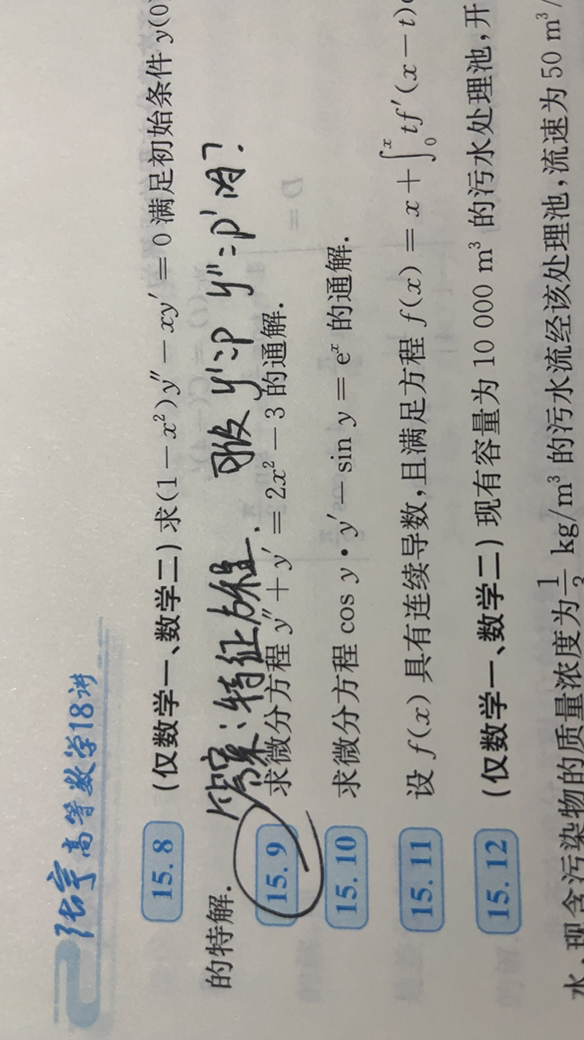 张宇高等数学18讲
15.8 (仅数学一、数学二)求(1−x²)y″−xy′=0满足初始条件y(0)
的特解.
答案:特征方程. 可设 y'=p y''=p' 吗?
15.9 求微分方程y″+y′=2x²−3的通解.
15.10 求微分方程cos y·y′−sin y=eˣ的通解.
15.11 设f(x)具有连续导数,且满足方程f(x)=x+∫₀ˣtf′(x−t)
15.12 (仅数学一、数学二)现有容量为10 000 m³的污水处理池,开
水,现含污染物的质量浓度为 kg/m³的污水流经该处理池,流速为50 m³/